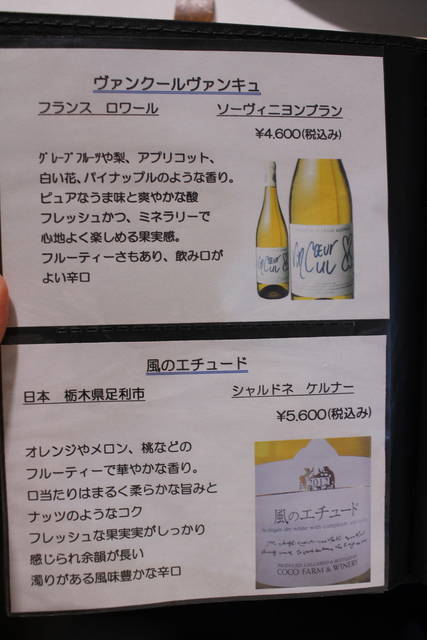 ヴァンクールヴァンキュ
フランス ロワール ソーヴィニヨンブラン
¥4,600(税込み)
グレープフルーツや梨、アプリコット、
白い花、パイナップルのような香り。
ピュアなうま味と爽やかな酸
フレッシュかつ、ミネラリーで
心地よく楽しめる果実感。
フルーティーさもあり、飲み口が
よい辛口
風のエチュード
日本 栃木県足利市 シャルドネ ケルナー
¥5,600(税込み)
オレンジやメロン、桃などの
フルーティーで華やかな香り。
口当たりはまるく柔らかな旨みと
ナッツのようなコク
フレッシュな果実実がしっかり
感じられ余韻が長い
濁りがある風味豊かな辛口
風のエチュード
COCO FARM & WINERY